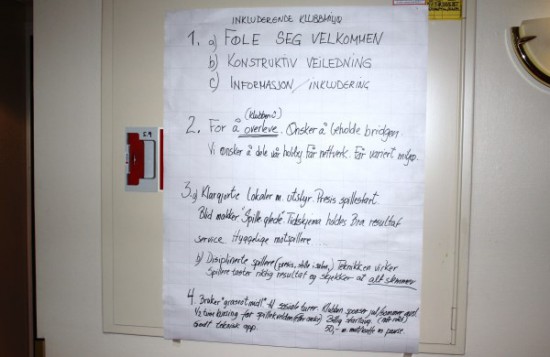 INKLUDERENDE KLUBBMILJØ
1. a) FØLE SEG VELKOMMEN
b) KONSTRUKTIV VEILEDNING
c) INFORMASJON/INKLUDERING
(Klubben å)
2. For å overleve. Ønsker å beholde bridgen.
Vi ønsker å dele vår hobby Får nettverk. Får variert miljø.
3. a) Klargjorte Lokaler m. utstyr. Presis spillestart.
Blid makker "Spille glede" Tidskjema holdes Bra resultat
service Hyggelige motspillere
b) Disiplinerte spillere (presis, stille i salen,) Teknikken virker
Spillere taster riktig resultat og sjekker at alt stemmer
4. Bruker "grasrotmidl" til sosiale turer. Klubben
1/2 time kursing før spillekvelden
Godt teknisk opp. 50,- m matkaffe m pause.